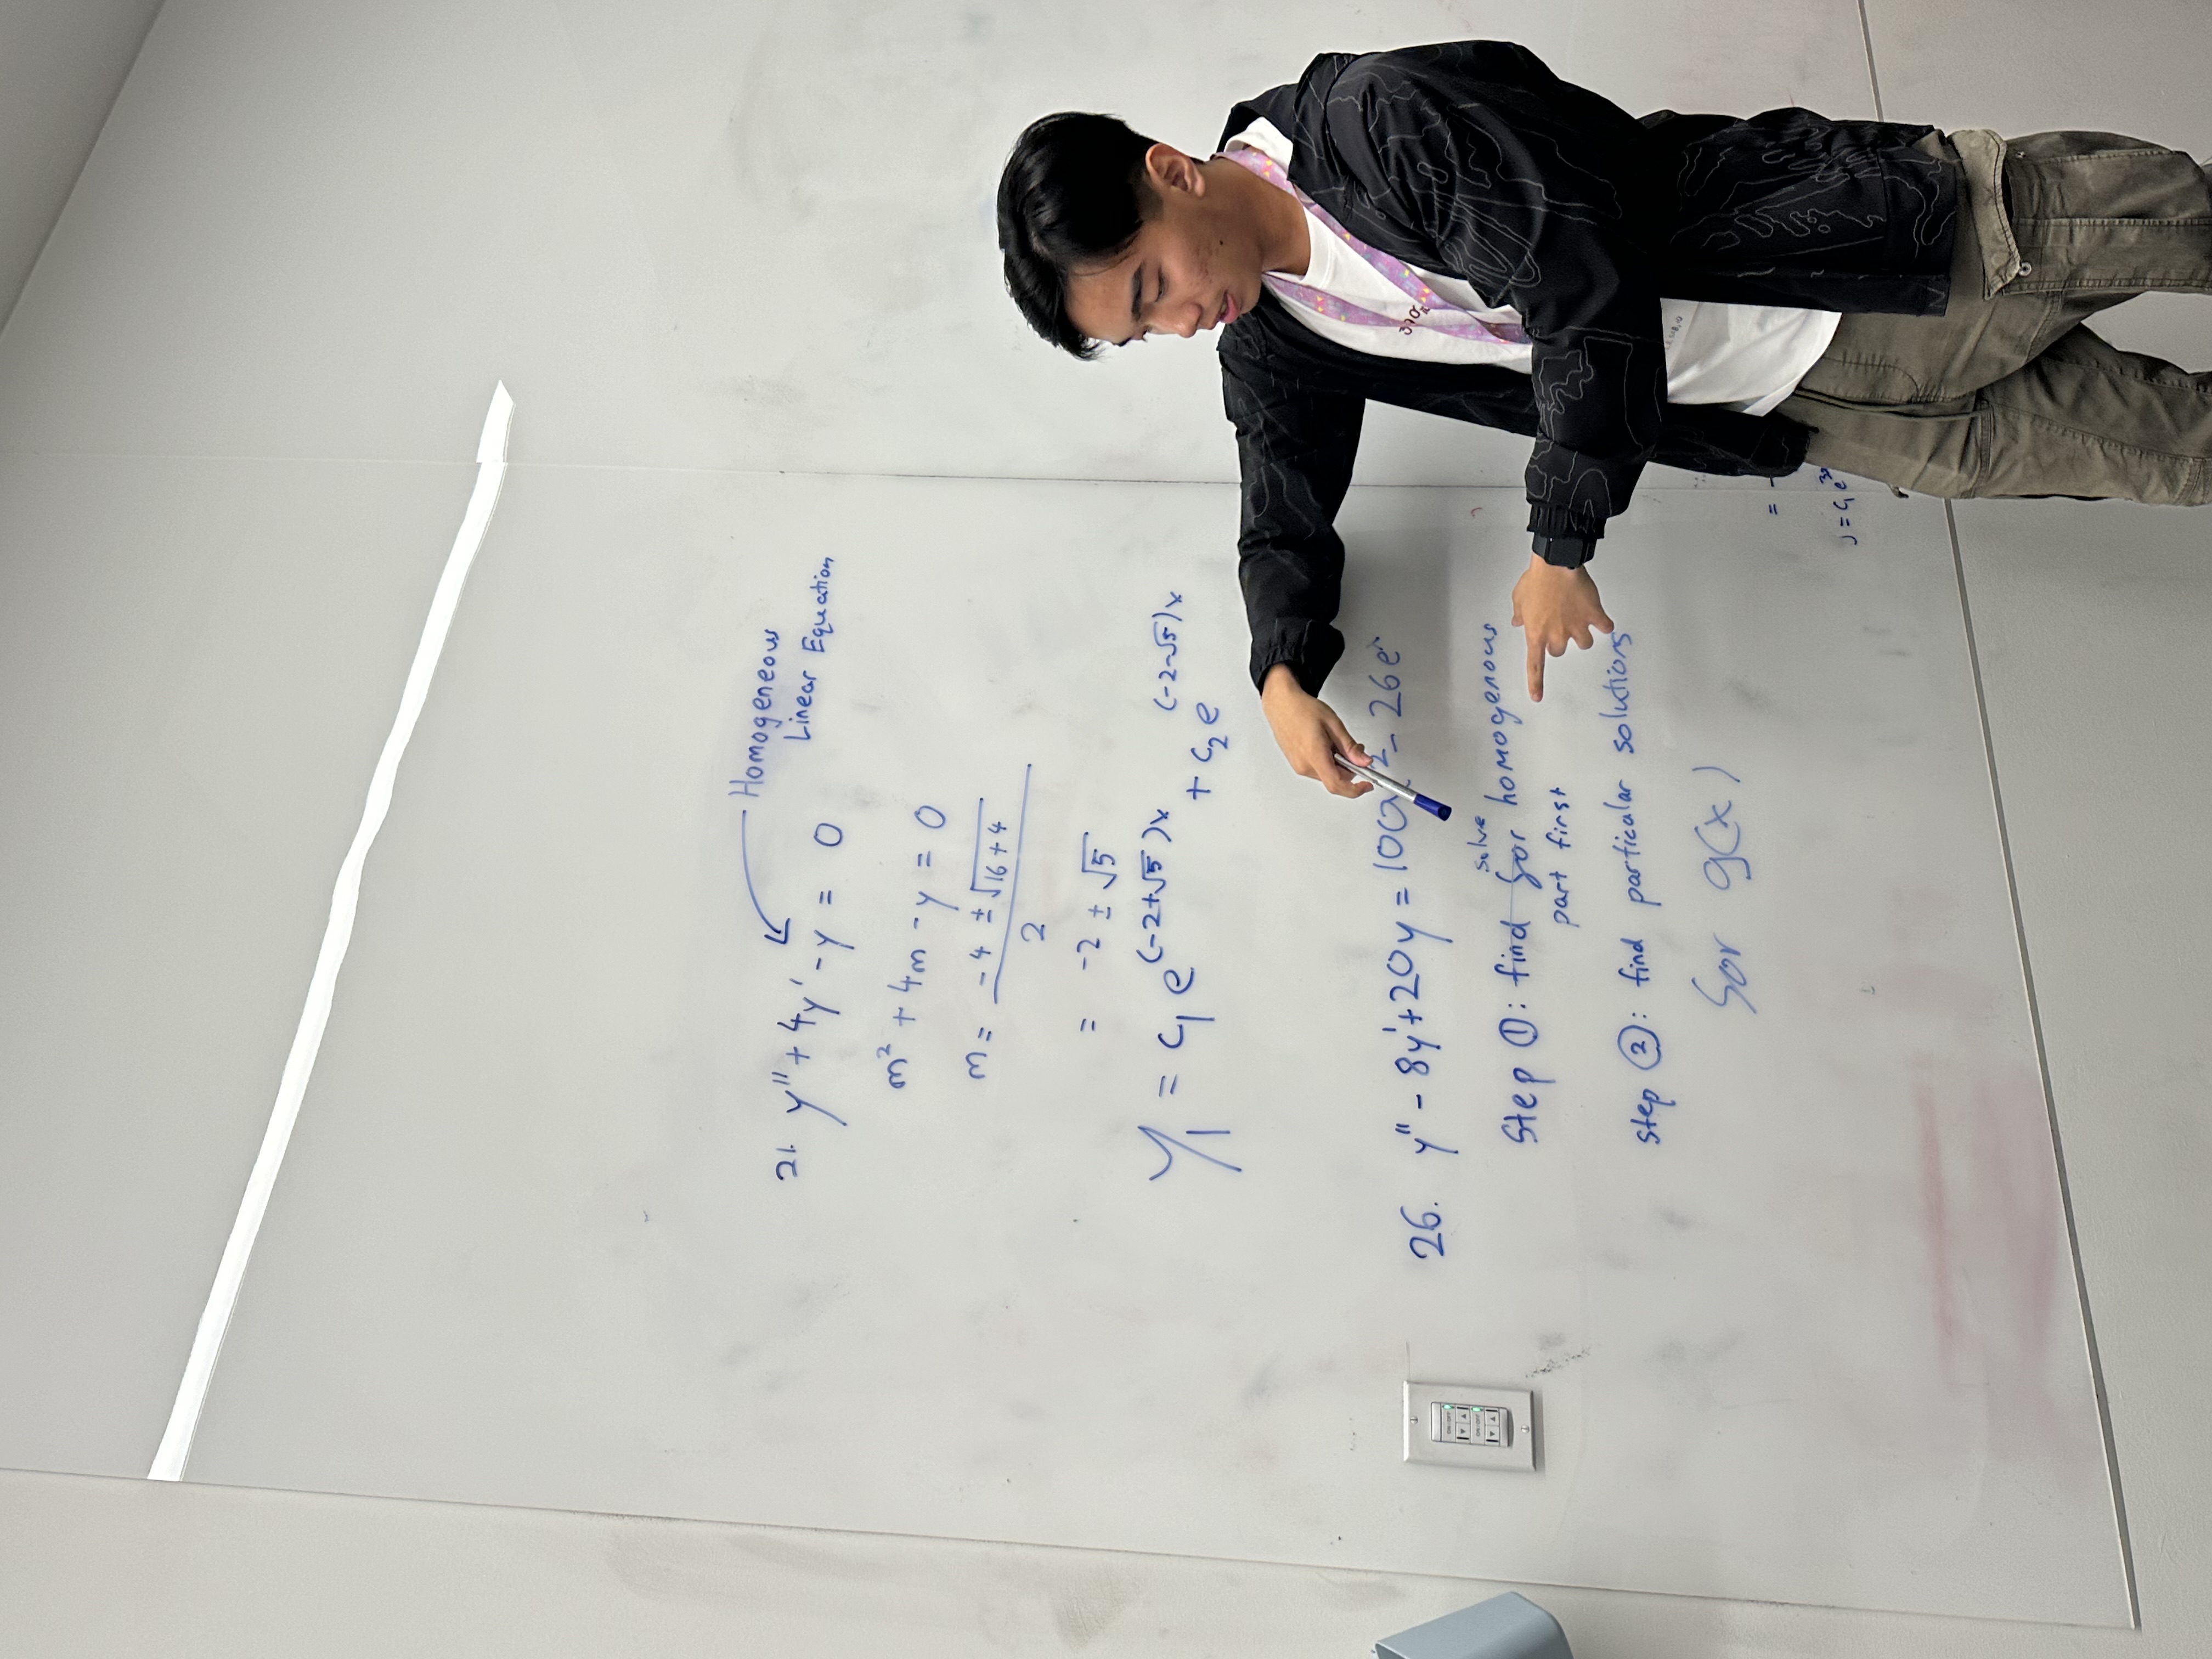 Homogeneous
Linear Equation
21. y'' + 4y' - y = 0
m² + 4m - y = 0
m = -4 ± √16 + 4
2
= -2 ± √5
y₁ = c₁ e^(-2+√5)x + c₂ e^(-2-√5)x
26. y'' - 8y' + 20y = 100 ² - 26e^x
solve
Step ①: find for homogenous
part first
step ②: find particular solutions
for g(x)
= -
= c₁ e³
ON/OFF
ON/OFF